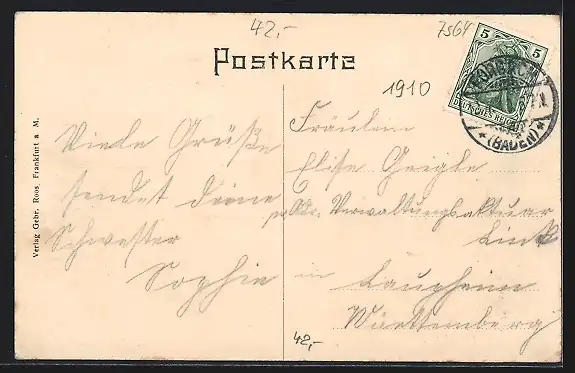 42,-
7564
Postkarte
1910
5 5
DEUTSCHES REICH
(BADEN)
Verlag Gebr. Roos, Frankfurt a. M.
Viele Grüße
sendet deine
Schwester
Sophie
Fräulein
Elise Geigle
Verwaltungsaktuar
Link
in Laupheim
Württemberg
42,-